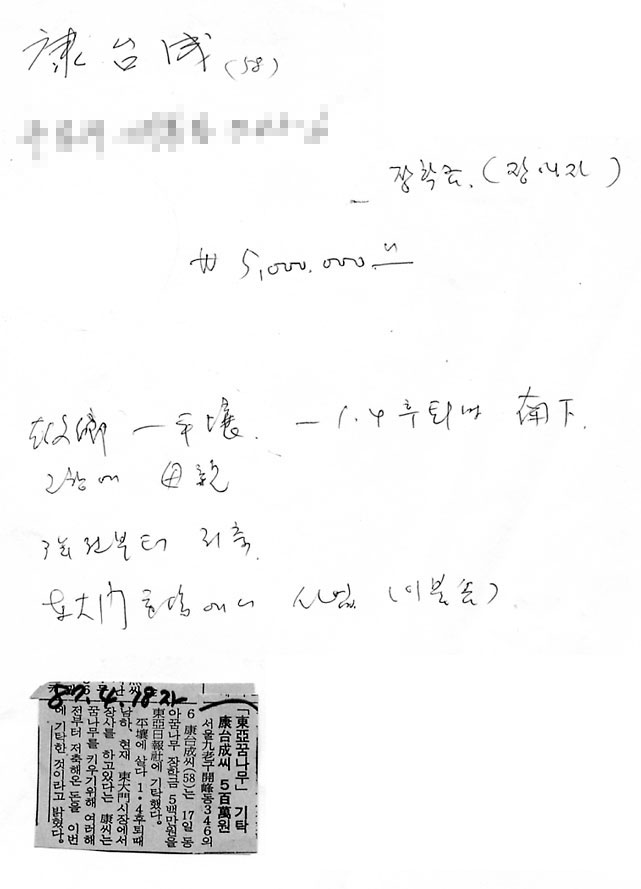 康台成 (58)
- 장학금. (장애자)
₩ 5,000,000.-
故鄕 - 平壤. - 1.4 후퇴때 南下.
고향에 母親
3년전부터 저축.
東大門 시장에서 사업 (이불솜)
87.4.18자
「東亞꿈나무」 기탁
康台成씨 5百萬원
서울九老구 開峰동346의
6 康台成씨(58)는 17일 동
아꿈나무 장학금 5백만원을
東亞日報社에 기탁했다.
平壤에 살다 1·4후퇴때
남하, 현재 東大門시장에서
장사를 하고있다는 康씨는
꿈나무를 키우기위해 여러해
전부터 저축해온 돈을 이번
에 기탁한 것이라고 밝혔다.